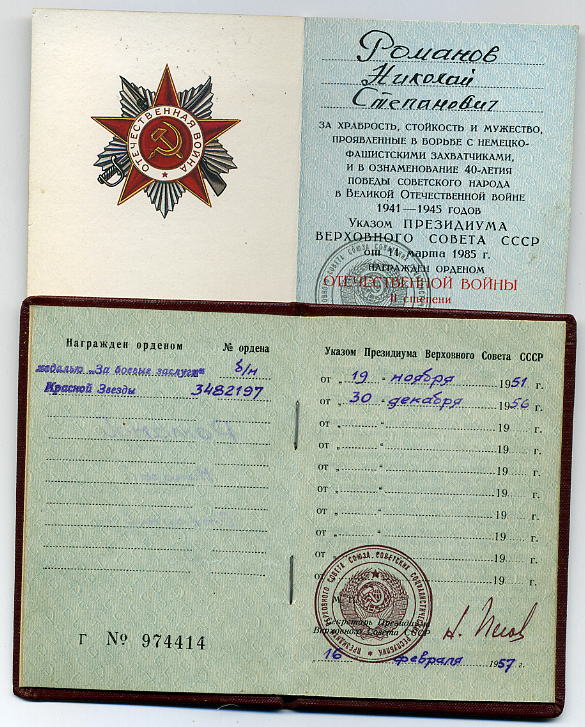 Романов
Николай
Степанович
ЗА ХРАБРОСТЬ, СТОЙКОСТЬ И МУЖЕСТВО,
ПРОЯВЛЕННЫЕ В БОРЬБЕ С НЕМЕЦКО-
ФАШИСТСКИМИ ЗАХВАТЧИКАМИ,
И В ОЗНАМЕНОВАНИЕ 40-ЛЕТИЯ
ПОБЕДЫ СОВЕТСКОГО НАРОДА
В ВЕЛИКОЙ ОТЕЧЕСТВЕННОЙ ВОЙНЕ
1941—1945 ГОДОВ
УКАЗОМ ПРЕЗИДИУМА
ВЕРХОВНОГО СОВЕТА СССР
от 11 марта 1985 г.
НАГРАЖДЕН ОРДЕНОМ
ОТЕЧЕСТВЕННОЙ ВОЙНЫ
II степени
ОТЕЧЕСТВЕННАЯ ВОЙНА
Награжден орденом № ордена
медалью „За боевые заслуги" б/н
Красной Звезды 3482197
Г № 974414
Указом Президиума Верховного Совета СССР
от „ 19 " ноября 1951 г.
от „ 30 " декабря 1956 г.
от „ " 19 г.
от „ " 19 г.
от „ " 19 г.
от „ " 19 г.
от „ " 19 г.
от „ " 19 г.
от „ " 19 г.
М. П.
Секретарь Президиума
Верховного Совета СССР
16 февраля 1957 г.
ПРЕЗИДИУМ ВЕРХОВНОГО СОВЕТА СОЮЗА СОВЕТСКИХ СОЦИАЛИСТИЧЕСКИХ РЕСПУБЛИК